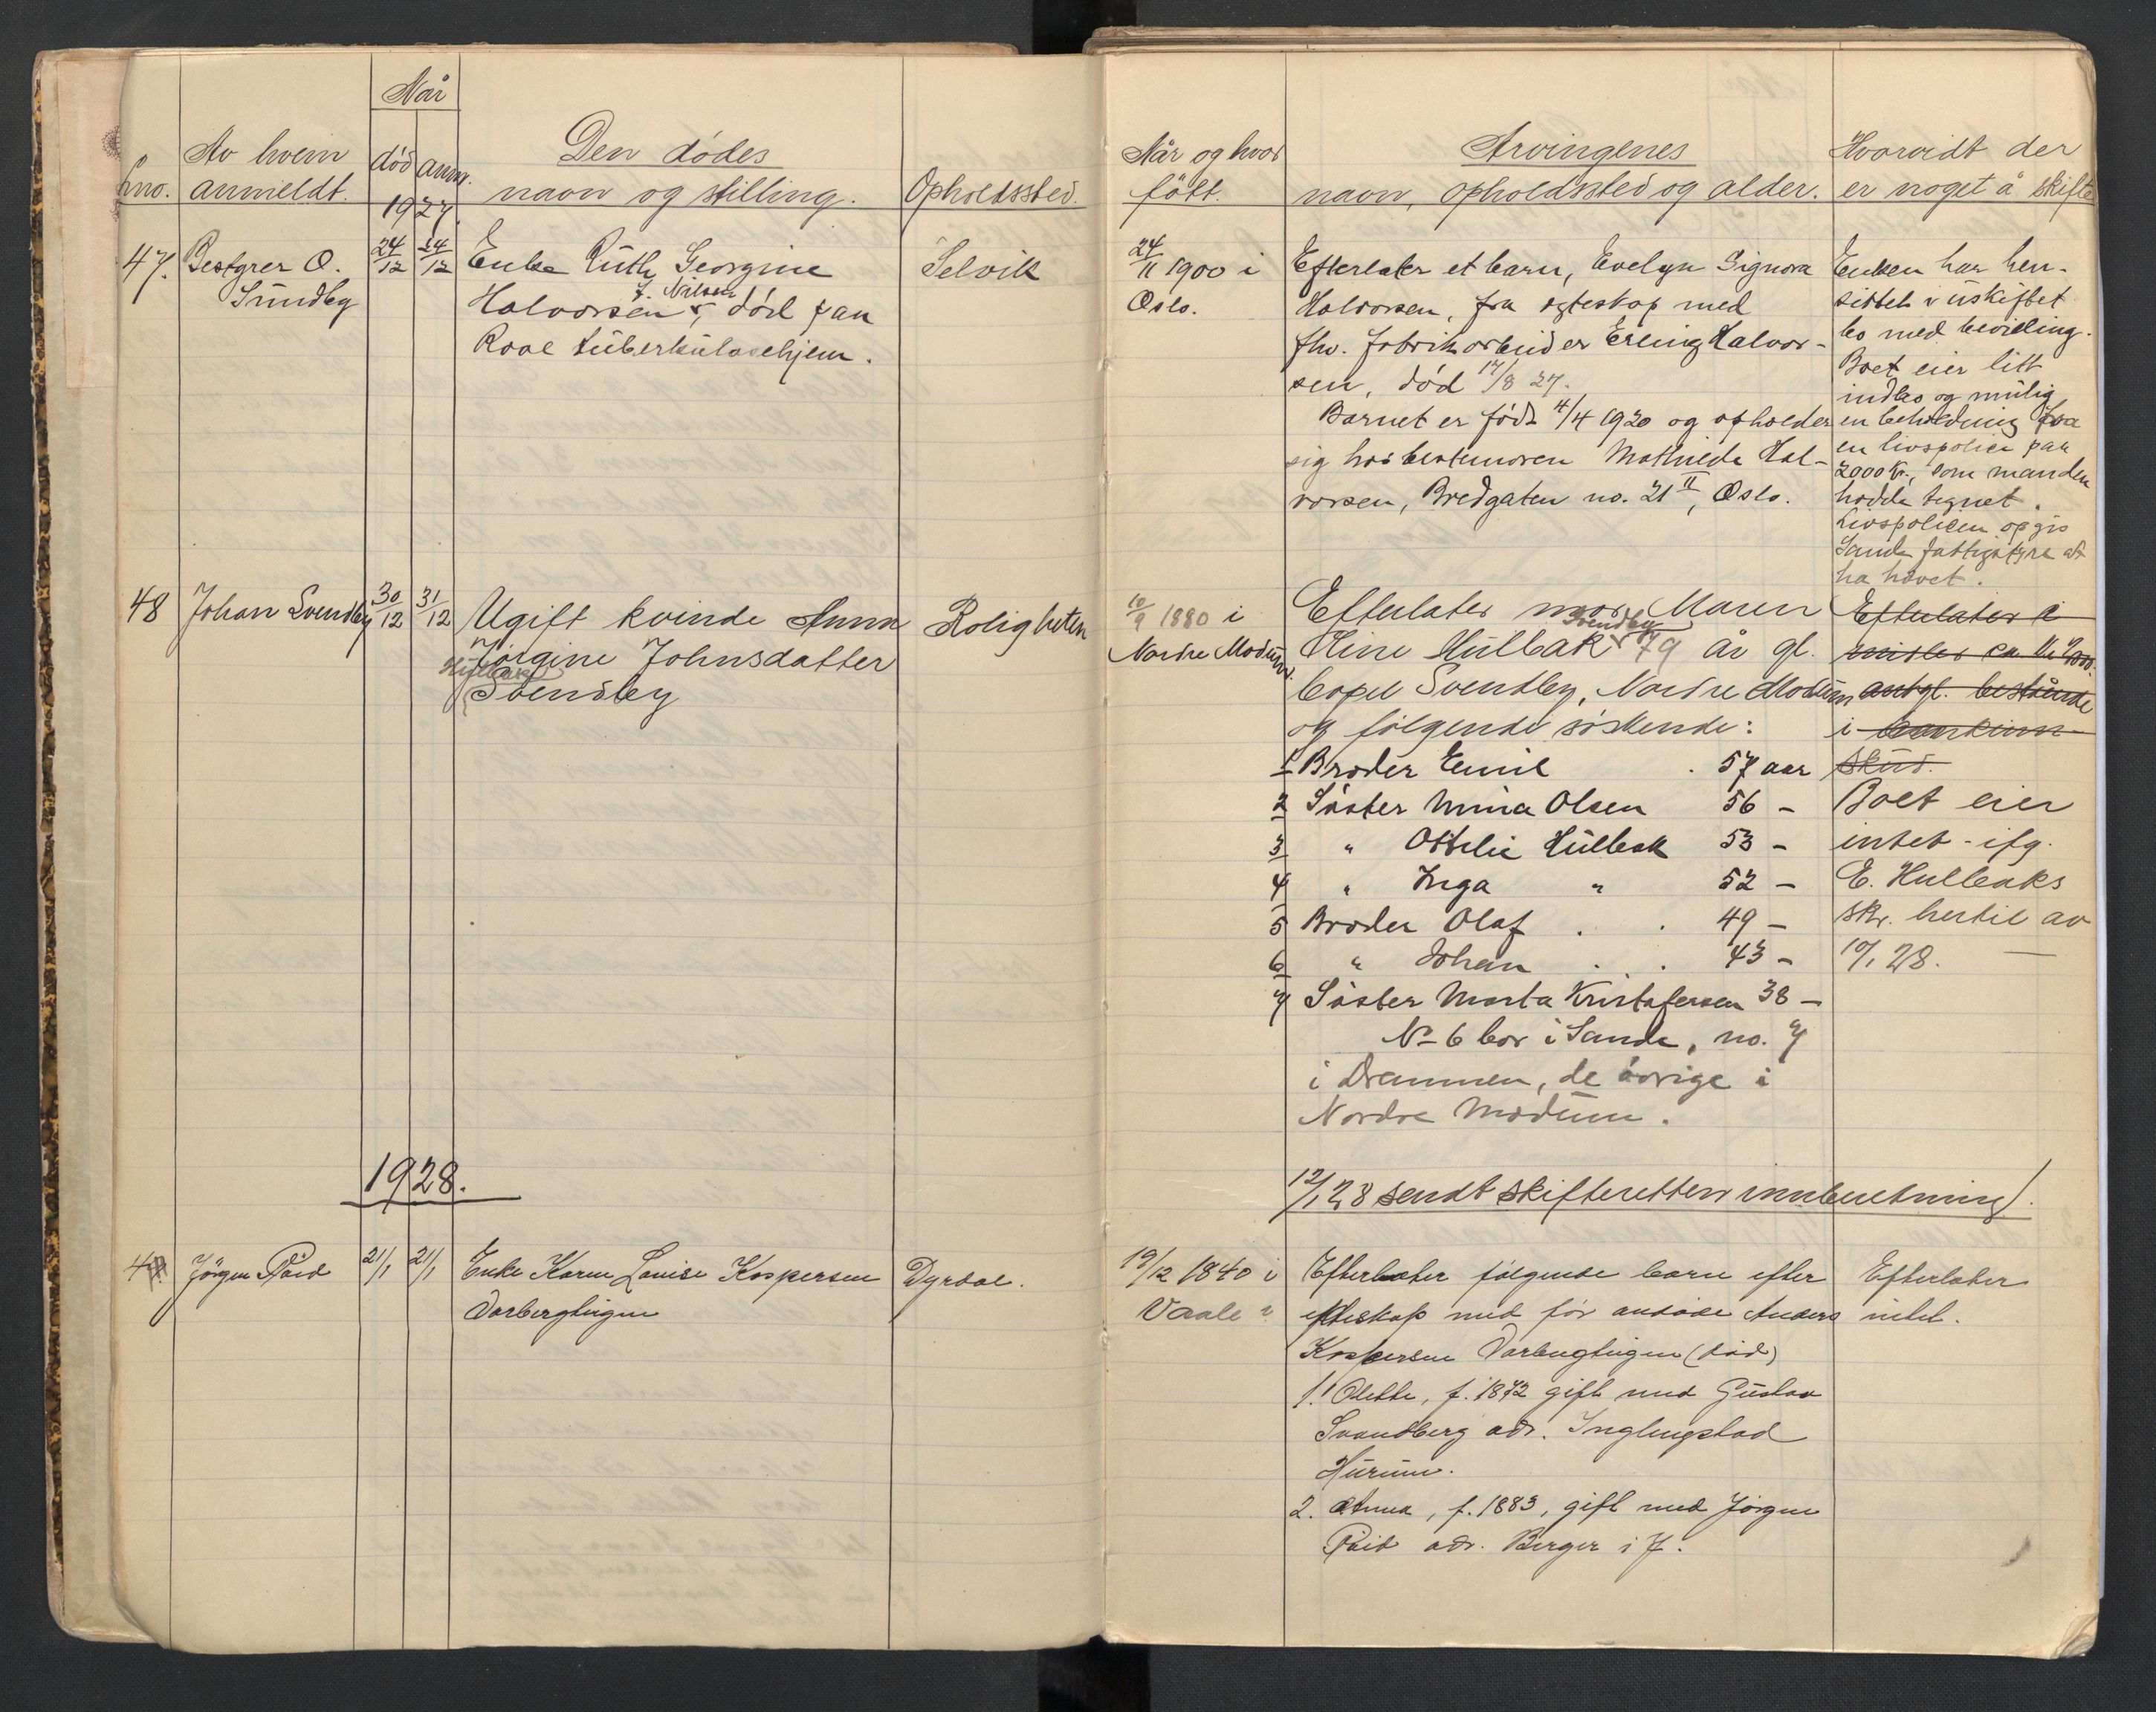 Når
Av hvem
anmeldt.
død
anm.
Den dødes
navn og stilling.
Opholdssted.
1927.
47.
Bestyrer O.
Sundby
24/12
24/12
Enke Ruth Georgine
f. Nilsen
Halvorsen, død paa
Roal tuberkulosehjem.
Selvik
48
Johan Svendby
30/12
31/12
Ugift kvinde Anna
Jørgine Johnsdatter
Hulbak
Svendby
Roligheten
1928.
Jörgen Röed
21/1
21/1
Enke Karen Lovise Kaspersen
Dyrdal.
Når og hvor
født.
Arvingenes
navn, opholdssted og alder.
Hvorvidt der
er noget å skifte
24/11 1900 i
Oslo.
Efterlater et barn, Evelyn Signora
Halvorsen, fra egteskap med
fhv. fabrikarbeider Erling Halvor-
sen, død 17/8 27.
Barnet er født 4/4 1920 og opholder
sig hos bestemoren Mathilde Hal-
vorsen, Bredgaten no. 21 II, Oslo.
Enken har hen-
sittet i uskiftet
bo med bevilling.
Boet eier litt
indbo og mulig
en beholdning fra
en livspolice paa
2000 kr., som manden
hadde tegnet.
Livspolicen opgis
Sande fattigstyre at
ha hævet.
10/9 1880 i
Nordre Modum.
Efterlater mor, Maren
Svendby
Hine Hulbak 79 år gl.
bopel Svendby, Nordre Modum
og følgende søskende:
1 Broder Emil . 57 aar
2 Søster Mina Olsen 56 -
3 " Ottilie Hulbak 53 -
4 " Inga " 52 -
5 Broder Olaf . . 49 -
6 " Johan . . 43 -
7 Søster Marta Kristofersen 38 -
No 6 bor i Sande, no. 7
i Drammen, de øvrige i
Nordre Modum.
Efterlater
bestående
i
Boet eier
intet - ifg.
E. Hulbaks
skr. hertil av
10/1 28.
12/1 28 sendt skifteretten innberetning.
19/12 1840 i
Vaale ?
Efterlater følgende barn efter
egteskap med før avdøde Anders
Kaspersen (død)
1. Olette, f. 1872 gift med Gustav
Svandberg adr.
Hurum.
2. Anna, f. 1883, gift med Jörgen
Röed adr. Berger i J.
Efterlater
intet.